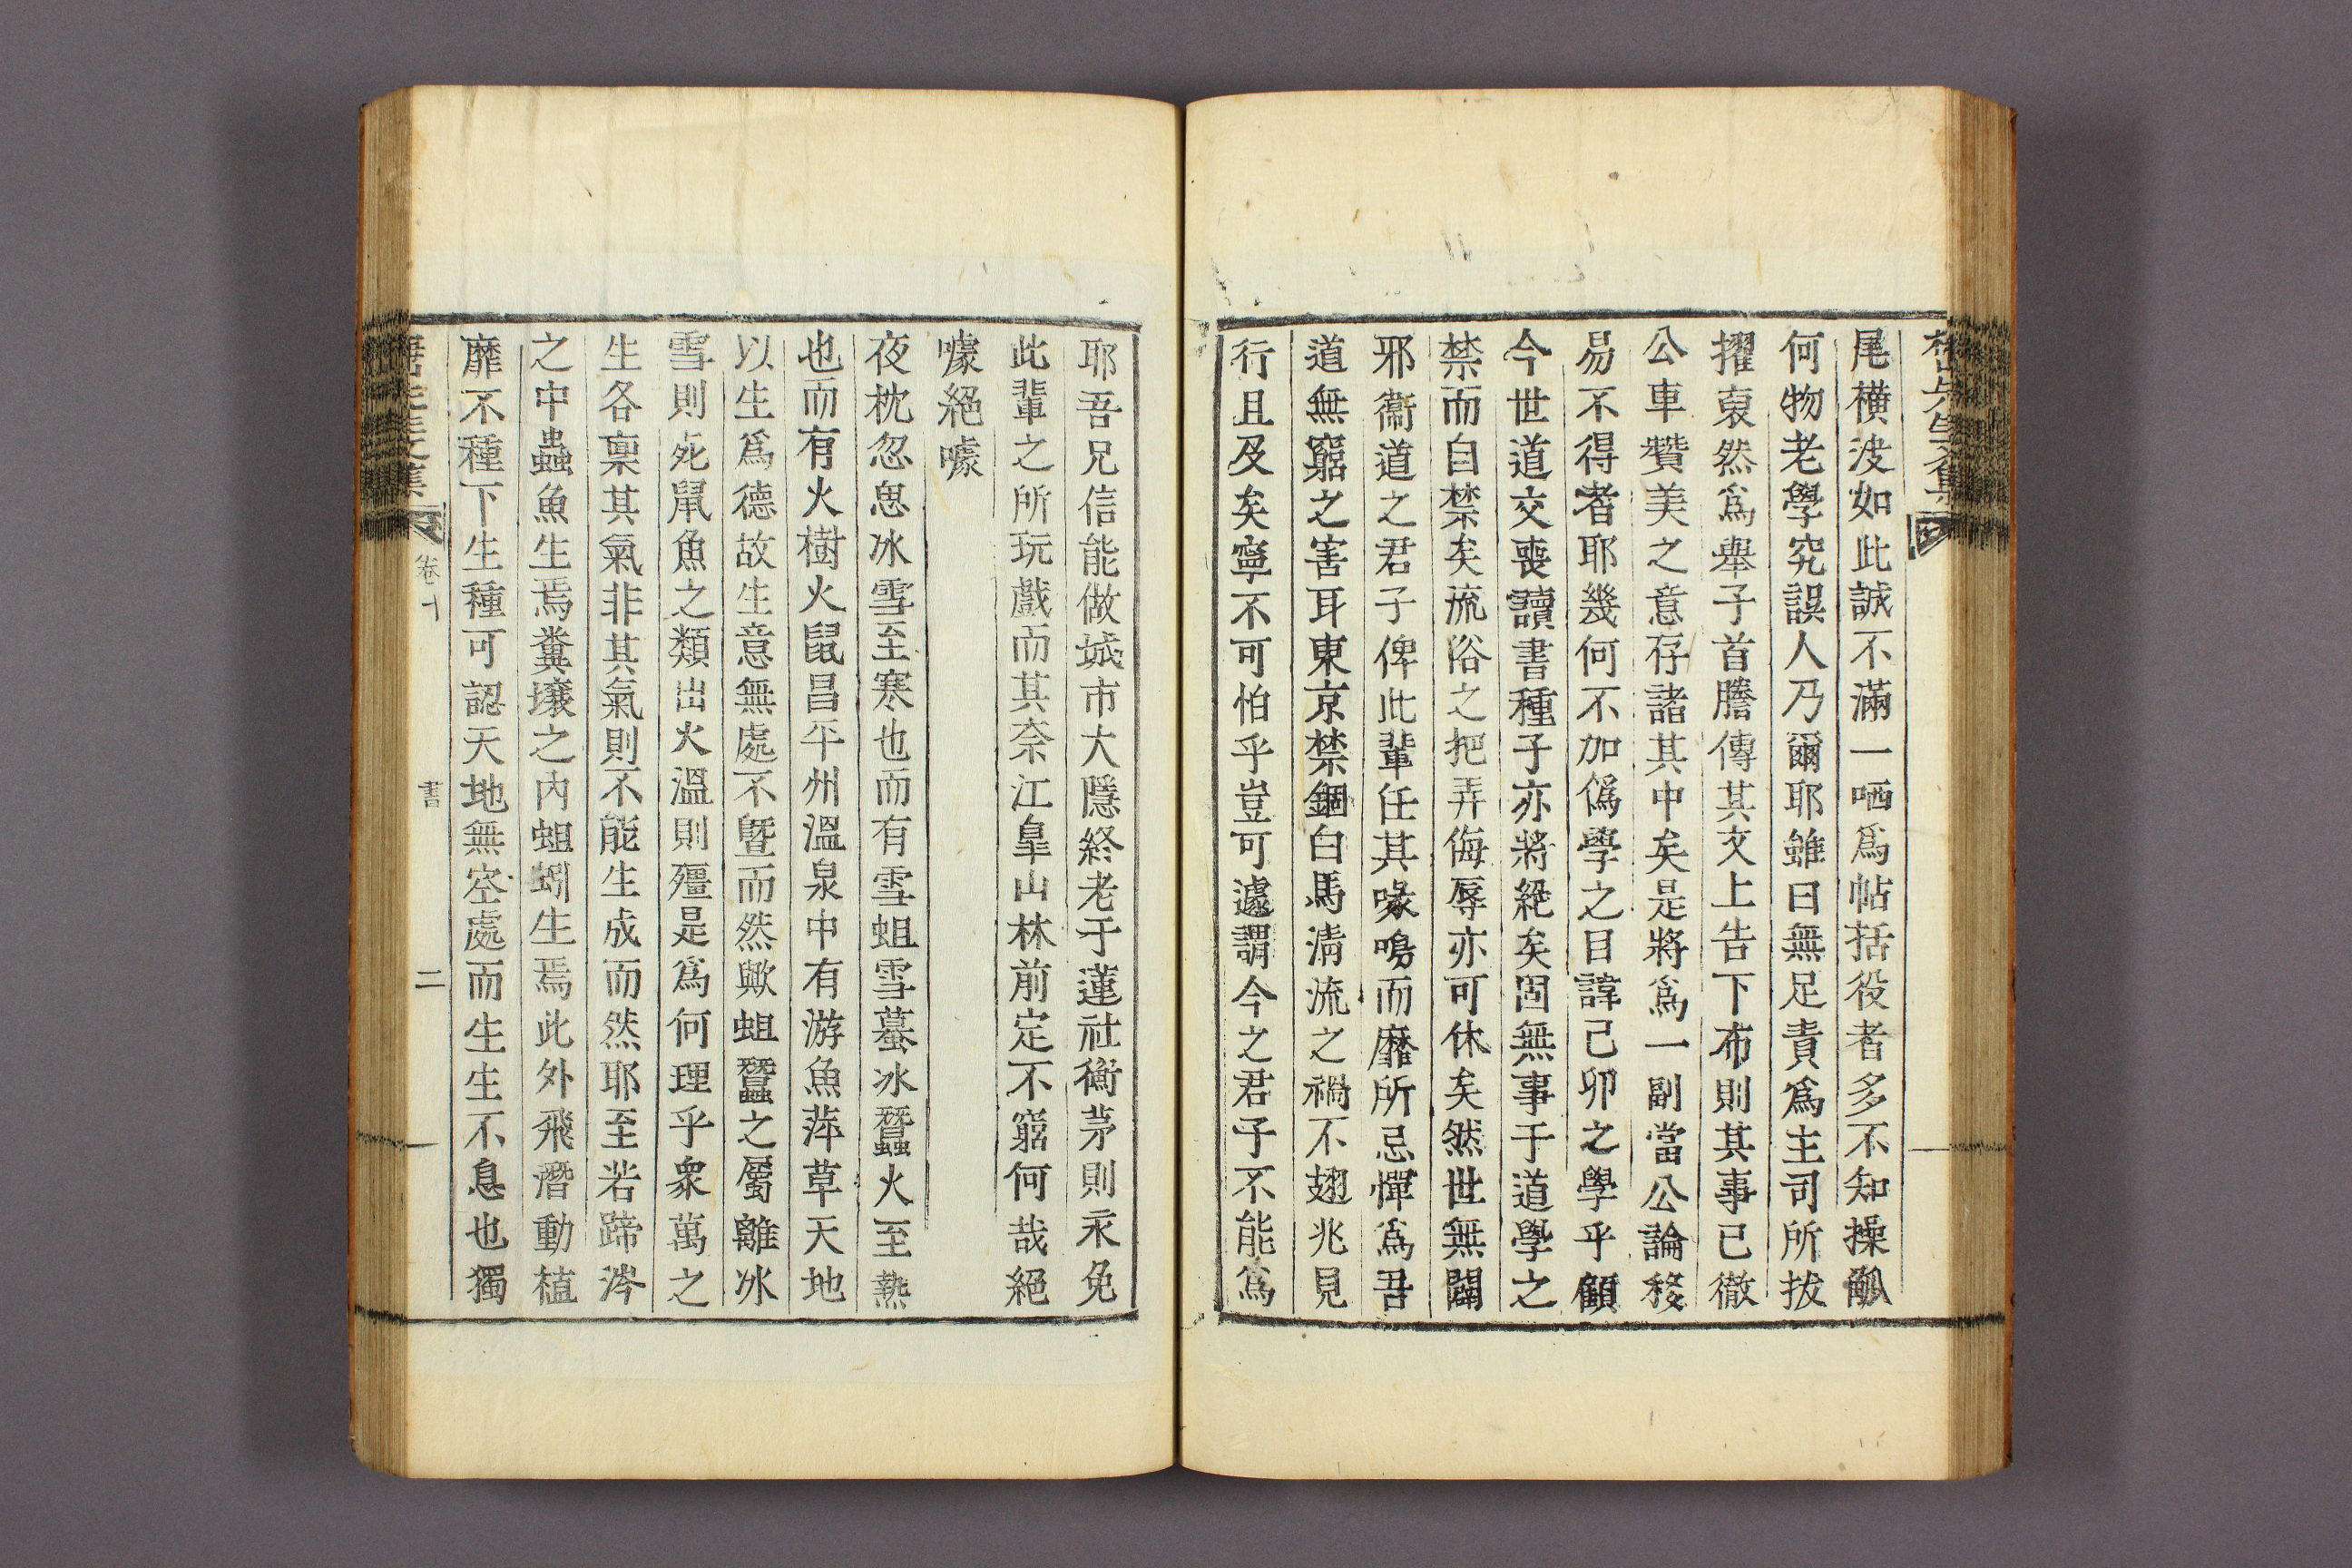 尾橫波如此誠不滿一哂爲帖括役者多不知操觚
何物老學究誤人乃爾耶雖曰無足責爲主司所拔
擢裒然爲舉子首謄傳其文上告下布則其事已徹
公車贊美之意存諸其中矣是將爲一副當公論移
易不得者耶幾何不加僞學之目諱己卯之學乎顧
今世道交喪讀書種子亦將絕矣固無事于道學之
禁而自禁矣流俗之把弄侮辱亦可休矣然世無闢
邪衞道之君子俾此輩任其喙鳴而靡所忌憚爲吾
道無窮之害耳東京禁錮白馬淸流之禍不翅兆見
行且及矣寧不可怕乎豈可遽謂今之君子不能爲
耶吾兄信能做城市大隱終老于蓮社衡茅則永免
此輩之所玩戲而其奈江臯山林前定不窮何哉絕
噱絕噱
夜枕忽思冰雪至寒也而有雪蛆雪蟇冰蠶火至爇
也而有火樹火鼠昌平州溫泉中有游魚萍草天地
以生爲德故生意無處不曁而然歟蛆蠶之屬離冰
雪則死鼠魚之類出火溫則殭是爲何理乎衆萬之
生各稟其氣非其氣則不能生成而然耶至若蹄涔
之中蟲魚生焉糞壤之內蛆蚓生焉此外飛潛動植
靡不種下生種可認天地無空處而生生不息也獨
卷十
書
二